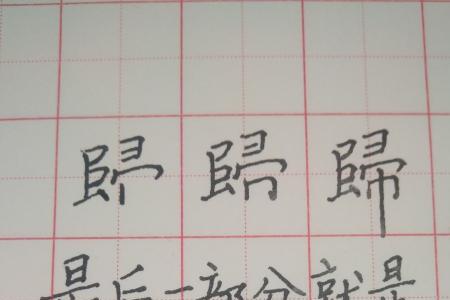 歸
最后一部分就是